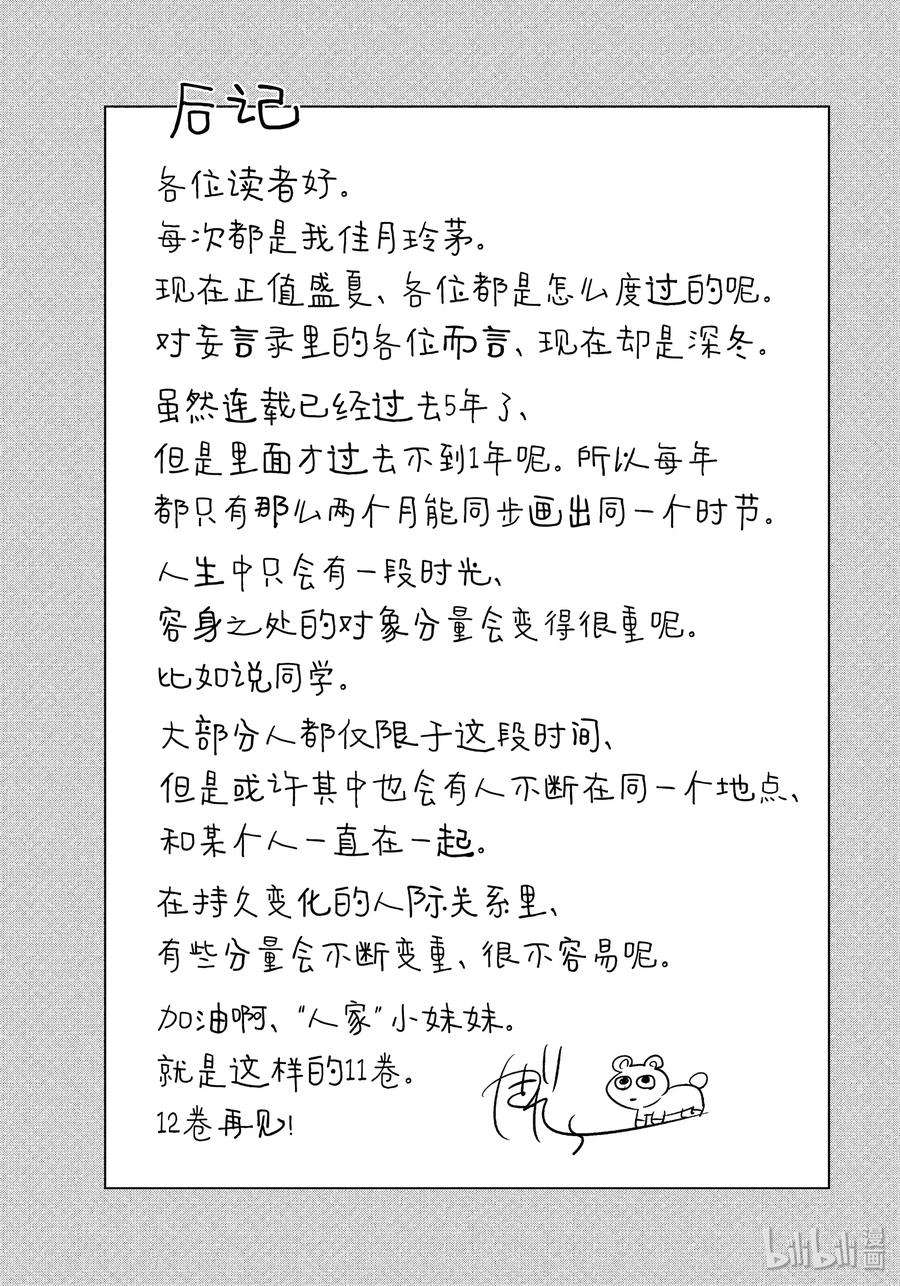 后记
各位读者好。
每次都是我佳月玲茅。
现在正值盛夏、各位都是怎么度过的呢。
对妄言录里的各位而言、现在却是深冬。
虽然连载已经过去5年了、
但是里面才过去不到1年呢。所以每年
都只有那么两个月能同步画出同一个时节。
人生中只会有一段时光、
容身之处的对象分量会变得很重呢。
比如说同学。
大部分人都仅限于这段时间、
但是或许其中也会有人不断在同一个地点、
和某个人一直在一起。
在持久变化的人际关系里、
有些分量会不断变重、很不容易呢。
加油啊、“人家”小妹妹。
就是这样的11卷。
12卷再见!
bilibili漫画